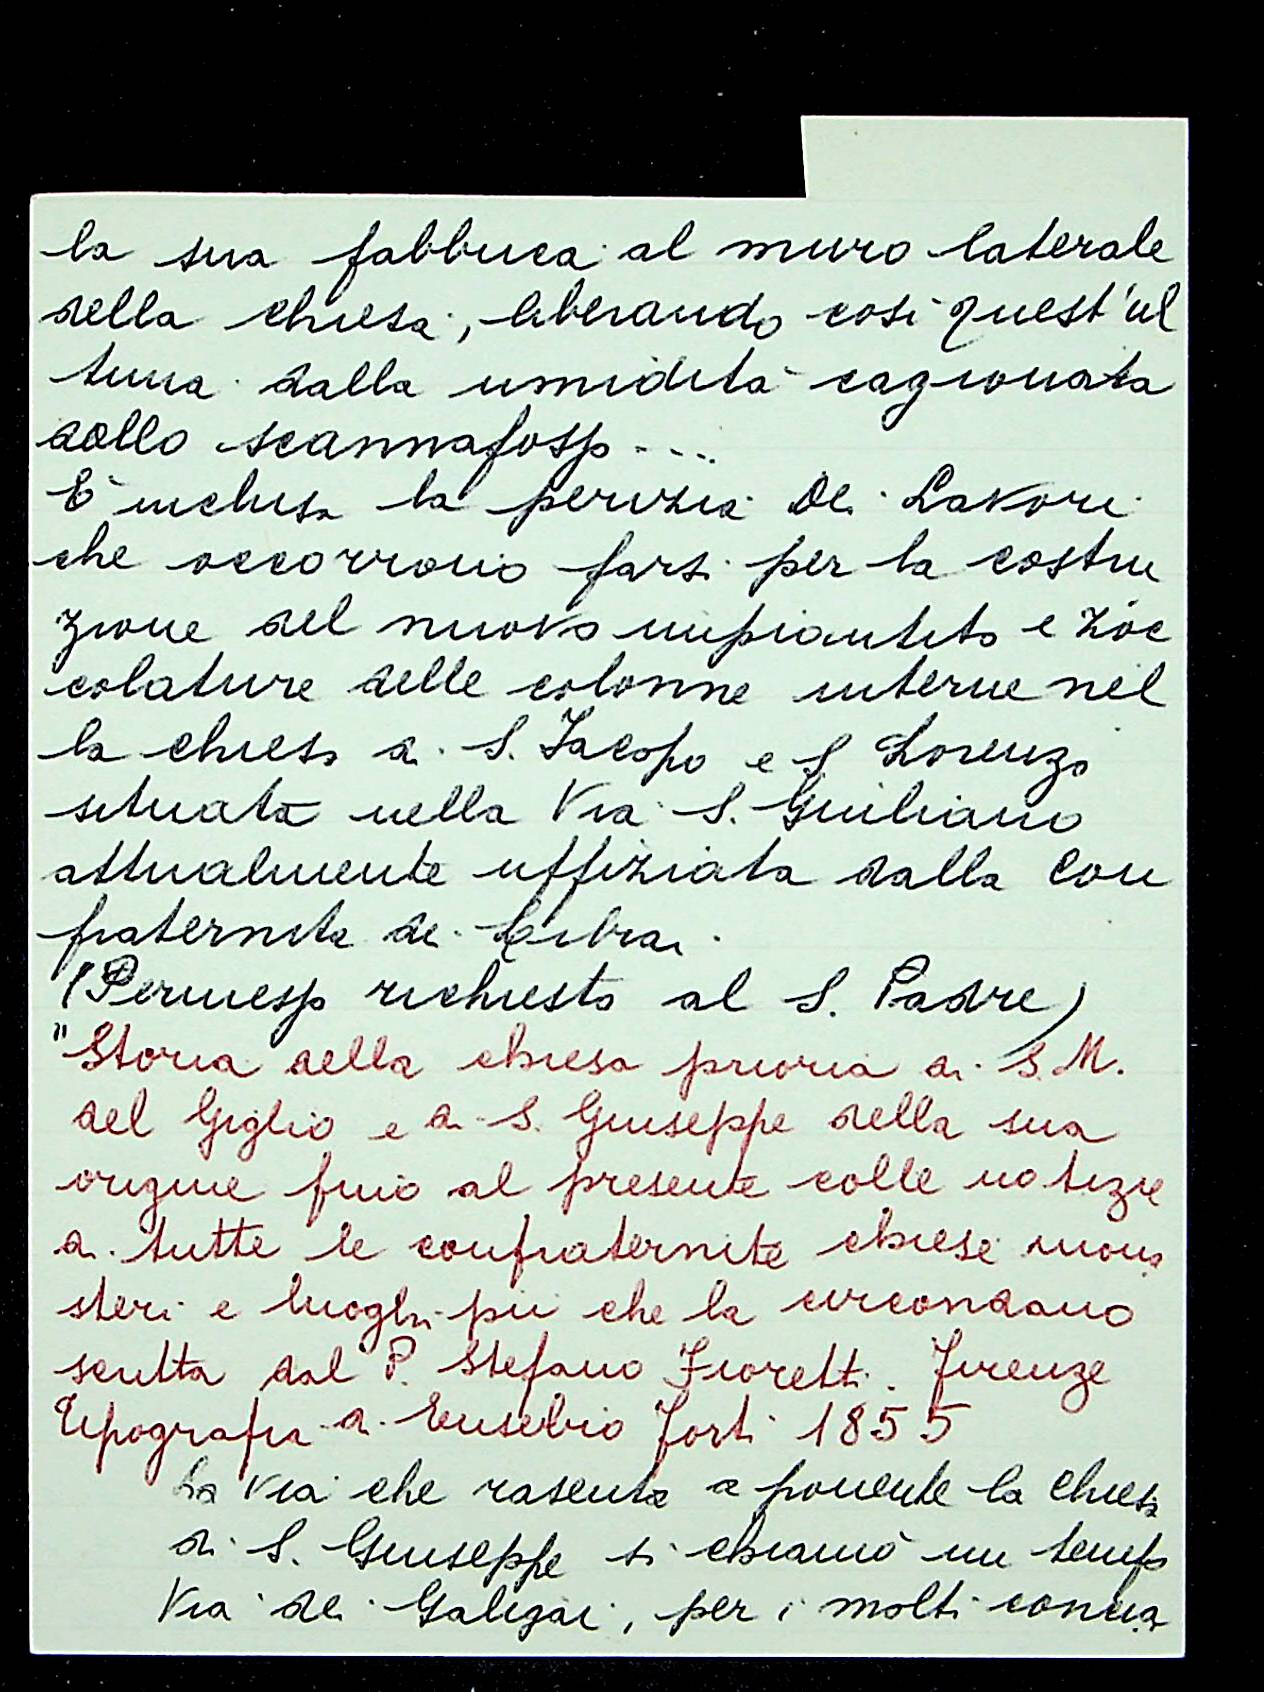 la sua fabbrica al muro laterale
della chiesa, liberando così quest'ul
tima dalla umidità cagionata
dello scannafosso ....
È inclusa la perizia Dei Lavori
che occorrono farsi per la costru
zione del nuovo impiantito e zoc
colature delle colonne interne nel
la chiesa di S. Jacopo e S. Lorenzo
situata nella Via S. Giuliano
attualmente uffiziata dalla Con
fraternita dei
(Permesso richiesto al S. Padre)
"Storia della chiesa prioria di S. M.
del Giglio e di S. Giuseppe della sua
origine fino al presente colle notizie
di tutte le confraternite chiese mona
steri e luoghi pii che la circondano
scritta dal P. Stefano Fioretti. Firenze
Tipografia di Eusebio Forti 1855
La via che rasenta a ponente la chiesa
di S. Giuseppe si chiamò un tempo
Via dei Galigai, per i molti concia